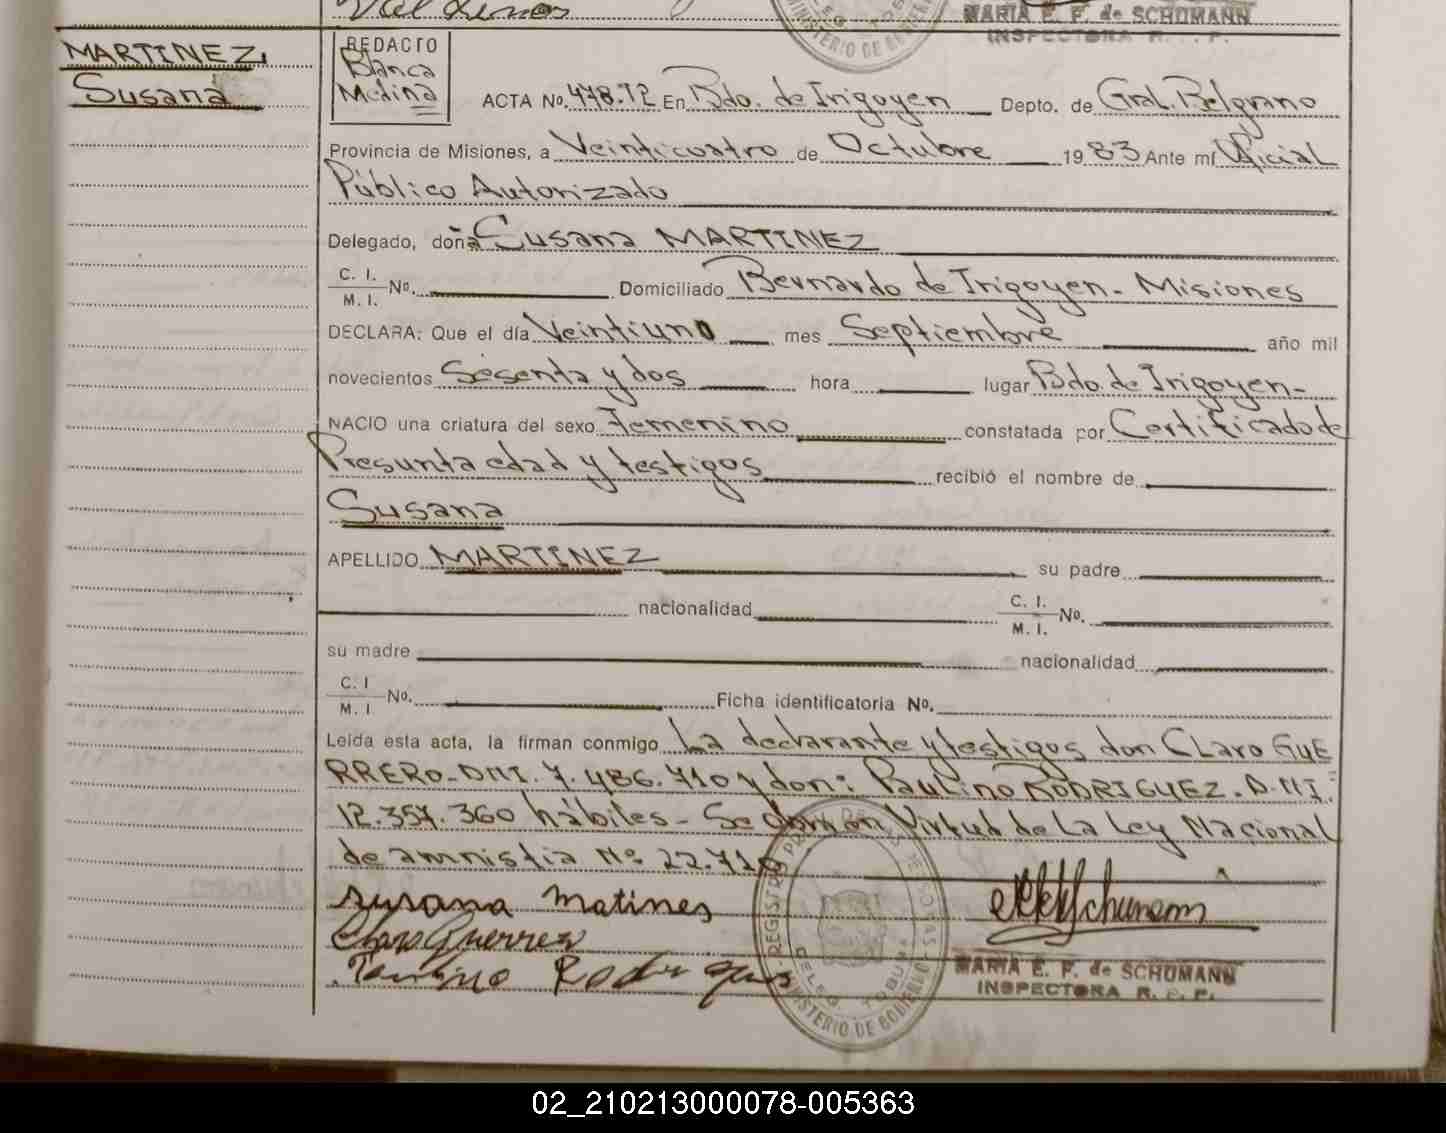 MARIA E. F. de SCHUMANN
INSPECTORA R. . P.
MINISTERIO DE
MARTINEZ,
Susana
REDACTO
Blanca
Medina
ACTA No. 478.T2 En Bdo. de Irigoyen Depto. de Gral. Belgrano
Provincia de Misiones, a Veinticuatro de Octubre 1983 Ante mí Oficial
Público Autorizado
Delegado, doña Susana MARTINEZ
C. I.
M. I. No. Domiciliado Bernardo de Irigoyen - Misiones
DECLARA: Que el día Veintiuno mes Septiembre año mil
novecientos Sesenta y dos hora lugar Bdo. de Irigoyen-
NACIO una criatura del sexo Femenino constatada por Certificado de
Presunta edad y testigos recibió el nombre de
Susana
APELLIDO MARTINEZ su padre
nacionalidad C. I.
M. I. No.
su madre nacionalidad
C. I
M. I. No. Ficha identificatoria No.
Leída esta acta, la firman conmigo La declarante y testigos don CLaro GUE
RRERO-DNI. 7.486.710 y don: Paulino RODRIGUEZ. D.NI.
12.357.360 hábiles- Se labró en Virtud de La Ley Nacional
de amnistia Nº 22.710
susana Matines
Claro Guerrero
Rodrigues
MARIA E. F. de SCHUMANN
INSPECTORA R. P. P.
MINISTERIO DE GOBIERNO
02_210213000078-005363